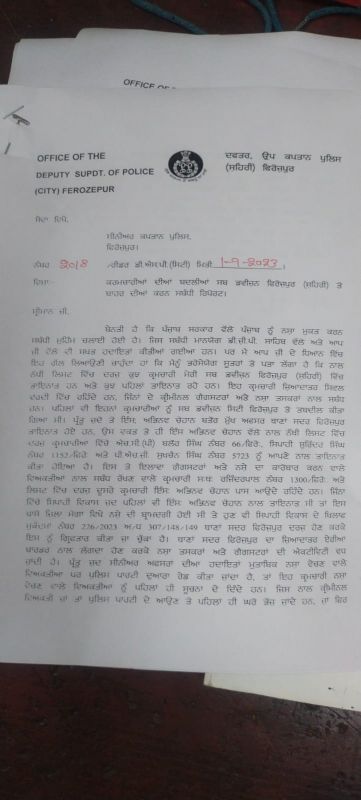 OFFICE OF
OFFICE OF THE
DEPUTY SUPDT. OF POLICE
(CITY) FEROZEPUR
ਦਫਤਰ, ਉਪ ਕਪਤਾਨ ਪੁਲਿਸ
(ਸ਼ਹਿਰੀ) ਫਿਰੋਜ਼ਪੁਰ
ਸੇਵਾ ਵਿਖੇ,
ਸੀਨੀਅਰ ਕਪਤਾਨ ਪੁਲਿਸ,
ਫਿਰੋਜ਼ਪੁਰ।
ਨੰਬਰ 2018 /ਰੀਡਰ ਡੀ.ਐਸ.ਪੀ.(ਸਿਟੀ) ਮਿਤੀ 1-9-2023
ਵਿਸ਼ਾ:- ਕਰਮਚਾਰੀਆਂ ਦੀਆਂ ਬਦਲੀਆਂ ਸਬ ਡਵੀਜ਼ਨ ਫਿਰੋਜ਼ਪੁਰ (ਸ਼ਹਿਰੀ) ਤੋਂ
ਬਾਹਰ ਦੀਆਂ ਕਰਨ ਸਬੰਧੀ ਰਿਪੋਰਟ।
ਸ਼੍ਰੀਮਾਨ ਜੀ,
ਬੇਨਤੀ ਹੈ ਕਿ ਪੰਜਾਬ ਸਰਕਾਰ ਵੱਲੋਂ ਪੰਜਾਬ ਨੂੰ ਨਸ਼ਾ ਮੁਕਤ ਕਰਨ
ਸਬੰਧੀ ਮੁਹਿੰਮ ਚਲਾਈ ਹੋਈ ਹੈ। ਜਿਸ ਸਬੰਧੀ ਮਾਨਯੋਗ ਡੀ.ਜੀ.ਪੀ. ਸਾਹਿਬ ਵੱਲੋਂ ਅਤੇ ਆਪ
ਜੀ ਵੱਲੋਂ ਵੀ ਸਖਤ ਹਦਾਇਤਾਂ ਕੀਤੀਆਂ ਗਈਆਂ ਹਨ। ਪਰ ਮੈਂ ਆਪ ਜੀ ਦੇ ਧਿਆਨ ਵਿੱਚ
ਇਹ ਗੱਲ ਲਿਆਉਣੀ ਚਾਹੁੰਦਾ ਹਾਂ ਕਿ ਮੈਨੂੰ ਭਰੋਸੇਯੋਗ ਸੂਤਰਾਂ ਤੋਂ ਪਤਾ ਲੱਗਾ ਹੈ ਕਿ ਨਾਲ
ਨੱਥੀ ਲਿਸਟ ਵਿੱਚ ਦਰਜ ਕੁਝ ਕ੍ਰਮਚਾਰੀ ਮੇਰੀ ਸਬ ਡਵੀਜ਼ਨ ਫਿਰੋਜ਼ਪੁਰ (ਸ਼ਹਿਰੀ) ਵਿੱਚ
ਤਾਇਨਾਤ ਹਨ ਅਤੇ ਕੁਝ ਪਹਿਲਾਂ ਤਾਇਨਾਤ ਰਹੇ ਹਨ। ਇਹ ਕ੍ਰਮਚਾਰੀ ਜ਼ਿਆਦਾਤਰ ਸਿਵਲ
ਵਰਦੀ ਵਿੱਚ ਰਹਿੰਦੇ ਹਨ, ਜਿੰਨਾਂ ਦੇ ਕ੍ਰੀਮੀਨਲ ਗੈਂਗਸਟਰਾਂ ਅਤੇ ਨਸ਼ਾ ਤਸਕਰਾਂ ਨਾਲ ਸਬੰਧ
ਹਨ। ਪਹਿਲਾਂ ਵੀ ਇਹਨਾਂ ਕ੍ਰਮਚਾਰੀਆਂ ਨੂੰ ਸਬ ਡਵੀਜ਼ਨ ਸਿਟੀ ਫਿਰੋਜ਼ਪੁਰ ਤੋਂ ਤਬਦੀਲ ਕੀਤਾ
ਗਿਆ ਸੀ। ਪ੍ਰੰਤੂ ਜਦੋਂ ਤੋਂ ਇੰਸ: ਅਭਿਨਵ ਚੌਹਾਨ ਬਤੌਰ ਮੁੱਖ ਅਫਸਰ ਥਾਣਾ ਸਦਰ ਫਿਰੋਜ਼ਪੁਰ
ਤਾਇਨਾਤ ਹੋਏ ਹਨ, ਉਸ ਵਕਤ ਤੋਂ ਹੀ ਇੰਸ: ਅਭਿਨਵ ਚੌਹਾਨ ਵੱਲੋਂ ਨਾਲ ਨੱਥੀ ਲਿਸਟ ਵਿੱਚ
ਦਰਜ ਕ੍ਰਮਚਾਰੀਆਂ ਵਿੱਚੋਂ ਐਚ.ਸੀ(ਪੀ) ਬਲੌਰ ਸਿੰਘ ਨੰਬਰ 66/ਫਿਰੋ:, ਸਿਪਾਹੀ ਸੁਰਿੰਦਰ ਸਿੰਘ
ਨੰਬਰ 1152/ਫਿਰੋ: ਅਤੇ ਪੀ.ਐਚ.ਜੀ. ਸੁਖਚੈਨ ਸਿੰਘ ਨੰਬਰ 5723 ਨੂੰ ਆਪਣੇ ਨਾਲ ਤਾਇਨਾਤ
ਕੀਤਾ ਹੋਇਆ ਹੈ। ਇਸ ਤੋਂ ਇਲਾਵਾ ਗੈਂਗਸਟਰਾਂ ਅਤੇ ਨਸ਼ੇ ਦਾ ਕਾਰੋਬਾਰ ਕਰਨ ਵਾਲੇ
ਵਿਅਕਤੀਆਂ ਨਾਲ ਸਬੰਧ ਰੱਖਣ ਵਾਲੇ ਕ੍ਰਮਚਾਰੀ ਸ:ਥ: ਰਜਿੰਦਰਪਾਲ ਨੰਬਰ 1300/ਫਿਰੋ: ਅਤੇ
ਲਿਸਟ ਵਿੱਚ ਦਰਜ ਦੂਸਰੇ ਕ੍ਰਮਚਾਰੀ ਇੰਸ: ਅਭਿਨਵ ਚੌਹਾਨ ਪਾਸ ਆਉਂਦੇ ਰਹਿੰਦੇ ਹਨ। ਜਿੰਨਾਂ
ਵਿੱਚੋਂ ਸਿਪਾਹੀ ਵਿਕਾਸ ਜਦ ਪਹਿਲਾਂ ਵੀ ਇੰਸ: ਅਭਿਨਵ ਚੌਹਾਨ ਨਾਲ ਤਾਇਨਾਤ ਸੀ ਤਾਂ ਇਸ
ਪਾਸੋਂ ਜ਼ਿਲਾ ਮੋਗਾ ਵਿਖੇ ਨਸ਼ੇ ਦੀ ਬ੍ਰਾਮਦਗੀ ਹੋਈ ਸੀ ਤੇ ਹੁਣ ਵੀ ਸਿਪਾਹੀ ਵਿਕਾਸ ਦੇ ਖਿਲਾਫ
ਮੁਕੱਦਮਾ ਨੰਬਰ 226/2023 ਅ/ਧ 307/148/149 ਥਾਣਾ ਸਦਰ ਫਿਰੋਜ਼ਪੁਰ ਦਰਜ ਹੋਣ ਕਰਕੇ
ਇਸ ਨੂੰ ਗ੍ਰਿਫਤਾਰ ਕੀਤਾ ਜਾ ਚੁੱਕਾ ਹੈ। ਥਾਣਾ ਸਦਰ ਫਿਰੋਜ਼ਪੁਰ ਦਾ ਜ਼ਿਆਦਾਤਰ ਏਰੀਆ
ਬਾਰਡਰ ਨਾਲ ਲੱਗਦਾ ਹੋਣ ਕਰਕੇ ਨਸ਼ਾ ਤਸਕਰਾਂ ਅਤੇ ਗੈਂਗਸਟਰਾਂ ਦੀ ਐਕਟੀਵਿਟੀ ਵਧ
ਜਾਂਦੀ ਹੈ। ਪ੍ਰੰਤੂ ਜਦ ਸੀਨੀਅਰ ਅਫਸਰਾਂ ਦੀਆਂ ਹਦਾਇਤਾਂ ਮੁਤਾਬਿਕ ਨਸ਼ਾ ਵੇਚਣ ਵਾਲੇ
ਵਿਅਕਤੀਆਂ ਪਰ ਪੁਲਿਸ ਪਾਰਟੀ ਦੁਆਰਾ ਰੇਡ ਕੀਤਾ ਜਾਂਦਾ ਹੈ, ਤਾਂ ਇਹ ਕ੍ਰਮਚਾਰੀ ਨਸ਼ਾ
ਵੇਚਣ ਵਾਲੇ ਵਿਅਕਤੀਆਂ ਨੂੰ ਪਹਿਲਾਂ ਹੀ ਸੂਚਨਾ ਦੇ ਦਿੰਦੇ ਹਨ। ਜਿਸ ਨਾਲ ਕ੍ਰੀਮੀਨਲ
ਵਿਅਕਤੀ ਜਾਂ ਤਾਂ ਪੁਲਿਸ ਪਾਰਟੀ ਦੇ ਆਉਣ ਤੋਂ ਪਹਿਲਾਂ ਹੀ ਘਰੋਂ ਭੱਜ ਜਾਂਦੇ ਹਨ, ਜਾਂ ਫਿਰ